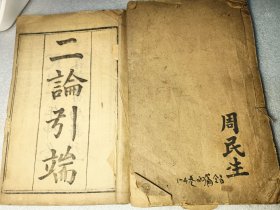 二論引端
周民生